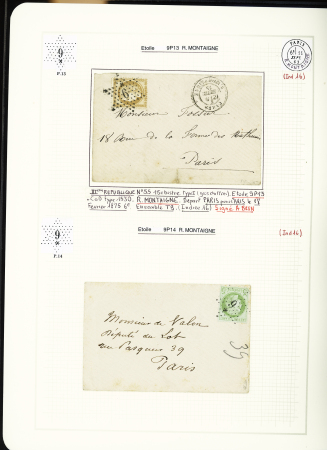 Etoile 9P13 R. MONTAIGNE
9
P.13
PARIS
(Ind 16)
Monsieur
18 de la des
Paris
III REPUBLIQUE N°55 15c bistre Type I Etoile 9P13
+ CàD type 1530. R. MONTAIGNE. Départ PARIS pour PARIS le 18
Février 1875 6° Ensemble TB. (Indice 16) Signé A BRUN
Etoile 9P14 R. MONTAIGNE
(Ind 16)
9
P.14
9
Monsieur de Valon
Député du Lot
rue Pasquier 39
Paris
35